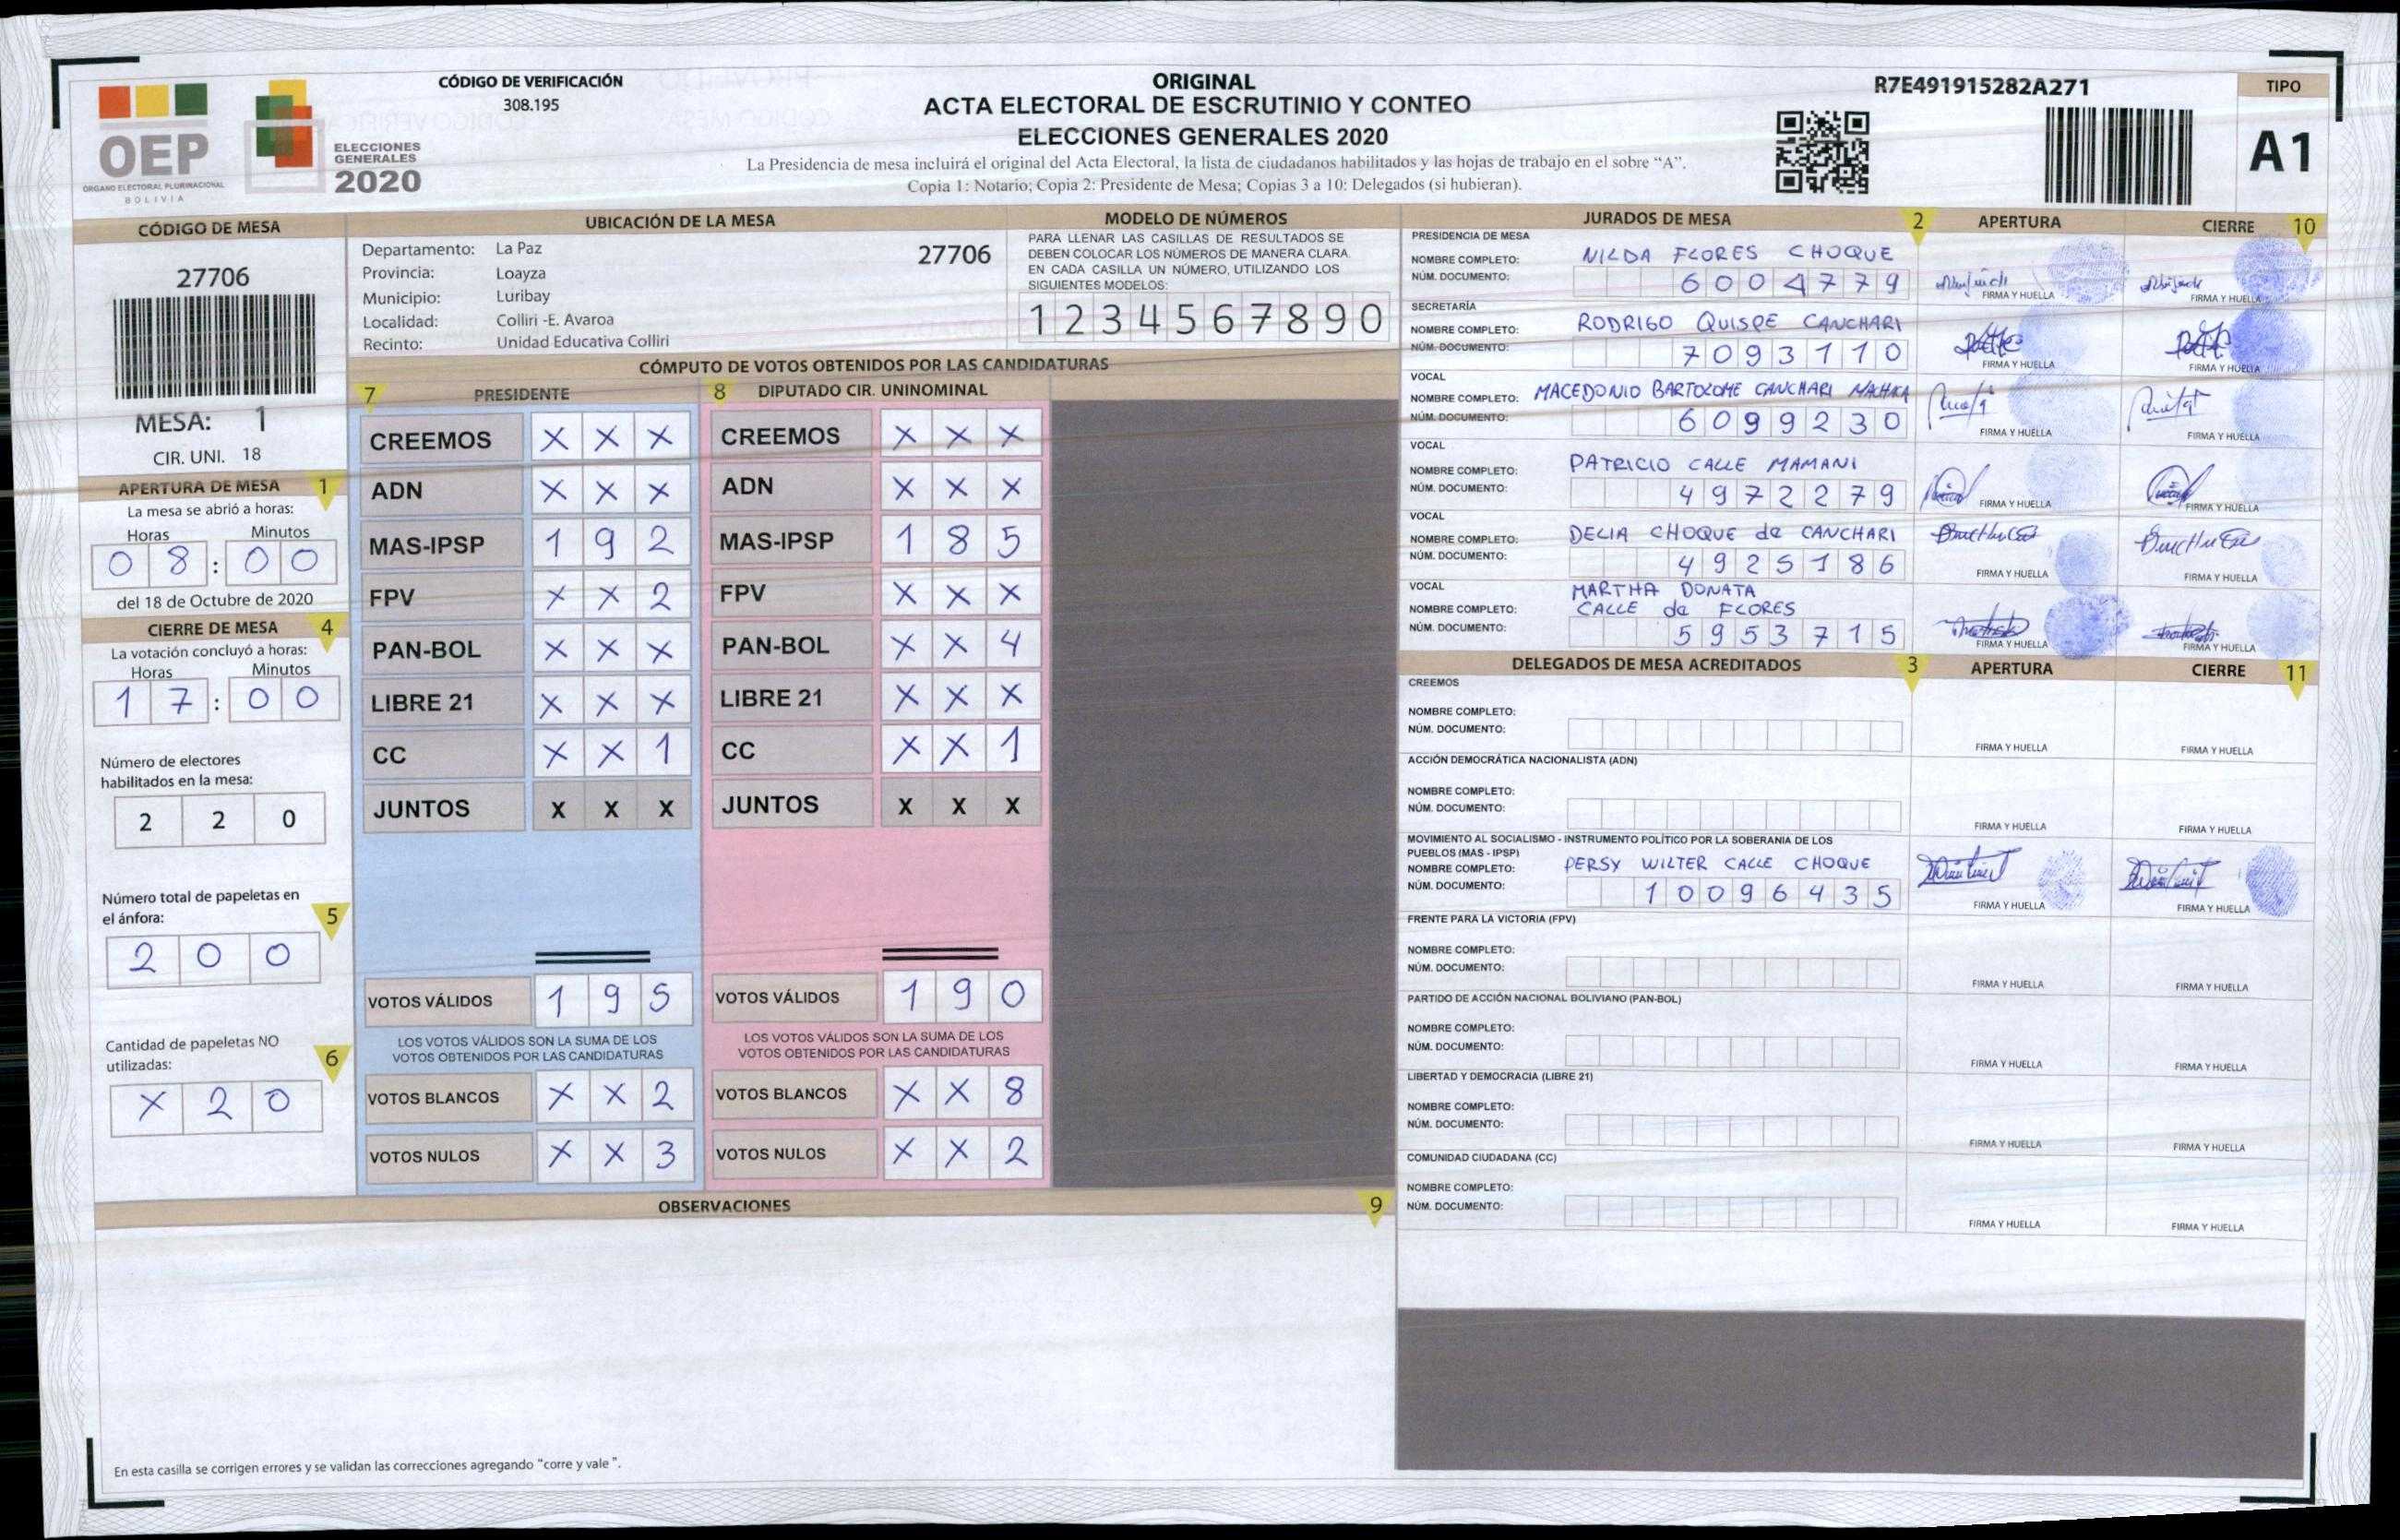 CÓDIGO DE VERIFICACIÓN
308.195
ORIGINAL
ACTA ELECTORAL DE ESCRUTINIO Y CONTEO
ELECCIONES GENERALES 2020
La Presidencia de mesa incluirá el original del Acta Electoral, la lista de ciudadanos habilitados y las hojas de trabajo en el sobre “A”.
Copia 1: Notario; Copia 2: Presidente de Mesa; Copias 3 a 10: Delegados (si hubieran).
R7E491915282A271
TIPO
A1
OEP
ÓRGANO ELECTORAL PLURINACIONAL
BOLIVIA
ELECCIONES
GENERALES
2020
CÓDIGO DE MESA
27706
MESA: 1
CIR. UNI. 18
APERTURA DE MESA 1
La mesa se abrió a horas:
Horas Minutos
0 8 : 0 0
del 18 de Octubre de 2020
CIERRE DE MESA 4
La votación concluyó a horas:
Horas Minutos
1 7 : 0 0
Número de electores
habilitados en la mesa:
2 2 0
Número total de papeletas en
el ánfora: 5
2 0 0
Cantidad de papeletas NO
utilizadas: 6
X 2 0
UBICACIÓN DE LA MESA
Departamento: La Paz 27706
Provincia: Loayza
Municipio: Luribay
Localidad: Colliri -E. Avaroa
Recinto: Unidad Educativa Colliri
MODELO DE NÚMEROS
PARA LLENAR LAS CASILLAS DE RESULTADOS SE
DEBEN COLOCAR LOS NÚMEROS DE MANERA CLARA.
EN CADA CASILLA UN NÚMERO, UTILIZANDO LOS
SIGUIENTES MODELOS:
1 2 3 4 5 6 7 8 9 0
CÓMPUTO DE VOTOS OBTENIDOS POR LAS CANDIDATURAS
7 PRESIDENTE
CREEMOS X X X
ADN X X X
MAS-IPSP 1 9 2
FPV X X 2
PAN-BOL X X X
LIBRE 21 X X X
CC X X 1
JUNTOS X X X
VOTOS VÁLIDOS 1 9 5
LOS VOTOS VÁLIDOS SON LA SUMA DE LOS
VOTOS OBTENIDOS POR LAS CANDIDATURAS
VOTOS BLANCOS X X 2
VOTOS NULOS X X 3
8 DIPUTADO CIR. UNINOMINAL
CREEMOS X X X
ADN X X X
MAS-IPSP 1 8 5
FPV X X X
PAN-BOL X X 4
LIBRE 21 X X X
CC X X 1
JUNTOS X X X
VOTOS VÁLIDOS 1 9 0
LOS VOTOS VÁLIDOS SON LA SUMA DE LOS
VOTOS OBTENIDOS POR LAS CANDIDATURAS
VOTOS BLANCOS X X 8
VOTOS NULOS X X 2
OBSERVACIONES 9
En esta casilla se corrigen errores y se validan las correcciones agregando “corre y vale”.
JURADOS DE MESA 2 APERTURA CIERRE 10
PRESIDENCIA DE MESA
NOMBRE COMPLETO: NILDA FLORES CHOQUE
NÚM. DOCUMENTO: 6 0 0 4 7 7 9
FIRMA Y HUELLA FIRMA Y HUELLA
SECRETARÍA
NOMBRE COMPLETO: RODRIGO QUISPE CANCHARI
NÚM. DOCUMENTO: 7 0 9 3 1 1 0
FIRMA Y HUELLA FIRMA Y HUELLA
VOCAL
NOMBRE COMPLETO: MACEDONIO BARTOLOME CANCHARI
NÚM. DOCUMENTO: 6 0 9 9 2 3 0
FIRMA Y HUELLA FIRMA Y HUELLA
VOCAL
NOMBRE COMPLETO: PATRICIO CALLE MAMANI
NÚM. DOCUMENTO: 4 9 7 2 2 7 9
FIRMA Y HUELLA FIRMA Y HUELLA
VOCAL
NOMBRE COMPLETO: DELIA CHOQUE de CANCHARI
NÚM. DOCUMENTO: 4 9 2 5 1 8 6
FIRMA Y HUELLA FIRMA Y HUELLA
VOCAL MARTHA DONATA
NOMBRE COMPLETO: CALLE de FLORES
NÚM. DOCUMENTO: 5 9 5 3 7 1 5
FIRMA Y HUELLA FIRMA Y HUELLA
DELEGADOS DE MESA ACREDITADOS 3 APERTURA CIERRE 11
CREEMOS
NOMBRE COMPLETO:
NÚM. DOCUMENTO:
FIRMA Y HUELLA FIRMA Y HUELLA
ACCIÓN DEMOCRÁTICA NACIONALISTA (ADN)
NOMBRE COMPLETO:
NÚM. DOCUMENTO:
FIRMA Y HUELLA FIRMA Y HUELLA
MOVIMIENTO AL SOCIALISMO - INSTRUMENTO POLÍTICO POR LA SOBERANIA DE LOS
PUEBLOS (MAS - IPSP)
NOMBRE COMPLETO: PERSY WILTER CALLE CHOQUE
NÚM. DOCUMENTO: 1 0 0 9 6 4 3 5
FIRMA Y HUELLA FIRMA Y HUELLA
FRENTE PARA LA VICTORIA (FPV)
NOMBRE COMPLETO:
NÚM. DOCUMENTO:
FIRMA Y HUELLA FIRMA Y HUELLA
PARTIDO DE ACCIÓN NACIONAL BOLIVIANO (PAN-BOL)
NOMBRE COMPLETO:
NÚM. DOCUMENTO:
FIRMA Y HUELLA FIRMA Y HUELLA
LIBERTAD Y DEMOCRACIA (LIBRE 21)
NOMBRE COMPLETO:
NÚM. DOCUMENTO:
FIRMA Y HUELLA FIRMA Y HUELLA
COMUNIDAD CIUDADANA (CC)
NOMBRE COMPLETO:
NÚM. DOCUMENTO:
FIRMA Y HUELLA FIRMA Y HUELLA